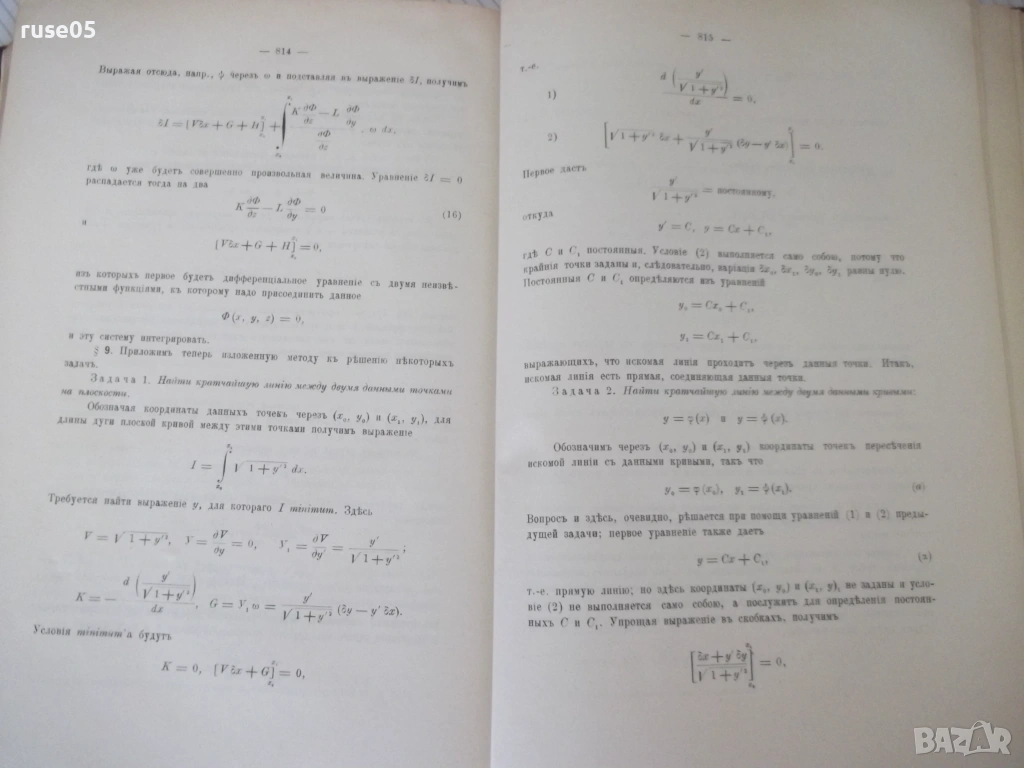 ruse05
— 814 —
Выражая отсюда, напр., ψ черезъ ω и подставляя въ выраженіе δI, получимъ
δI = [Vδx + G + H]_{x₀}^{x₁} + ∫_{x₀}^{x₁} (K ∂Φ/∂z — L ∂Φ/∂y)/(∂Φ/∂z) . ω dx,
гдѣ ω уже будетъ совершенно произвольная величина. Уравненіе δI = 0
распадается тогда на два
K ∂Φ/∂z — L ∂Φ/∂y = 0 (16)
и
[Vδx + G + H]_{x₀}^{x₁} = 0,
изъ которыхъ первое будетъ дифференціальное уравненіе съ двумя неизвѣ-
стными функціями, къ которому надо присоединить данное
Φ (x, y, z) = 0,
и эту систему интегрировать.
§ 9. Приложимъ теперь изложенную методу къ рѣшенію нѣкоторыхъ
задачъ.
Задача 1. Найти кратчайшую линію между двумя данными точками
на плоскости.
Обозначая координаты данныхъ точекъ черезъ (x₀, y₀) и (x₁, y₁), для
длины дуги плоской кривой между этими точками получимъ выраженіе
I = ∫_{x₀}^{x₁} √(1 + y′²) dx.
Требуется найти выраженіе y, для котораго I minimum. Здѣсь
V = √(1 + y′²), Y = ∂V/∂y = 0, Y₁ = ∂V/∂y′ = y′/√(1 + y′²);
K = — d (y′/√(1 + y′²))/dx, G = Y₁ ω = y′/√(1 + y′²) (δy — y′ δx).
Условія minimum'а будутъ
K = 0, [Vδx + G]_{x₀}^{x₁} = 0,
— 815 —
т.-е.
1) d (y′/√(1 + y′²))/dx = 0,
2) [√(1 + y′²) δx + y′/√(1 + y′²) (δy — y′ δx)]_{x₀}^{x₁} = 0.
Первое дастъ
y′/√(1 + y′²) = постоянному,
откуда
y′ = C, y = Cx + C₁,
гдѣ C и C₁ постоянныя. Условіе (2) выполняется само собою, потому что
крайнія точки заданы и, слѣдовательно, варіаціи δx₀, δx₁, δy₀, δy₁ равны нулю.
Постоянныя C и C₁ опредѣляются изъ уравненій
y₀ = Cx₀ + C₁,
y₁ = Cx₁ + C₁,
выражающихъ, что искомая линія проходитъ черезъ данныя точки. Итакъ,
искомая линія есть прямая, соединяющая данныя точки.
Задача 2. Найти кратчайшую линію между двумя данными кривыми:
y = φ (x) и y = ψ (x).
Обозначимъ черезъ (x₀, y₀) и (x₁, y₁) координаты точекъ пересѣченія
искомой линіи съ данными кривыми, такъ что
y₀ = φ (x₀), y₁ = ψ (x₁), (α)
Вопросъ и здѣсь, очевидно, рѣшается при помощи уравненій (1) и (2) преды-
дущей задачи; первое уравненіе также даетъ
y = Cx + C₁, (x)
т.-е. прямую линію; но здѣсь координаты (x₀, y₀) и (x₁, y₁) не заданы и усло-
віе (2) не выполняется само собою, а послужитъ для опредѣленія постоян-
ныхъ C и C₁. Упрощая выраженіе въ скобкахъ, получимъ
[(δx + y′ δy)/√(1 + y′²)]_{x₀}^{x₁} = 0,
BAZAR